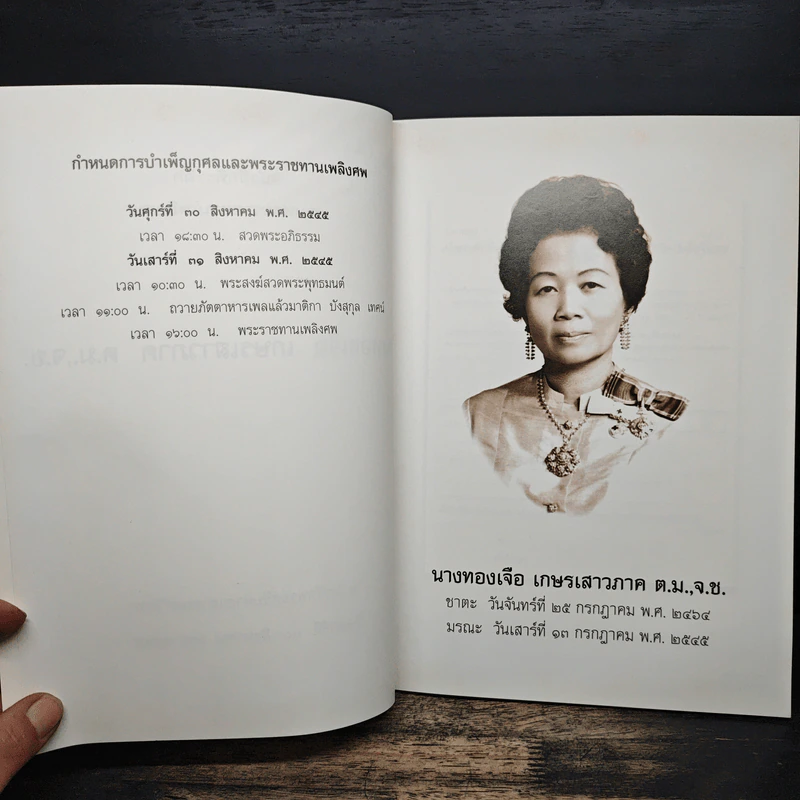 กำหนดการบำเพ็ญกุศลและพระราชทานเพลิงศพ
วันศุกร์ที่ ๓๐ สิงหาคม พ.ศ. ๒๕๔๕
เวลา ๑๘:๓๐ น. สวดพระอภิธรรม
วันเสาร์ที่ ๓๑ สิงหาคม พ.ศ. ๒๕๔๕
เวลา ๑๐:๓๐ น. พระสงฆ์สวดพระพุทธมนต์
เวลา ๑๑:๐๐ น. ถวายภัตตาหารเพลแล้วมาติกา บังสุกุล เทศน์
เวลา ๑๖:๐๐ น. พระราชทานเพลิงศพ
นางทองเจือ เกษรเสาวภาค ต.ม.,จ.ช.
ชาตะ วันจันทร์ที่ ๒๕ กรกฎาคม พ.ศ. ๒๔๖๔
มรณะ วันเสาร์ที่ ๑๓ กรกฎาคม พ.ศ. ๒๕๔๕